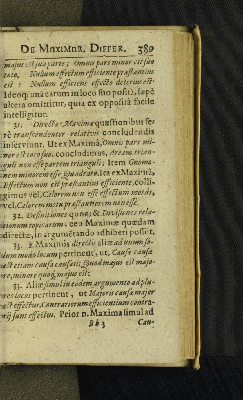 DE MAXIMAR. DIFFER. 389
majus est sua parte; Omnis pars minor est suo
toto. Nullum effectum efficiente præstantius
est: Nullum efficiens effecto deterius est.
Ideoq; una earum in loco suo posita, sæpè
altera omittitur, quia ex opposita facile
intelligitur.
31. Directæ Maximæ quæstionibus fe-
rè transcendenter relativis concludendis
inserviunt. Ut ex Maxima, Omnis pars mi-
nor est toto suo, concludimus, Aream trian-
guli esse partem trianguli: Item Gnomo-
nem minorem esse Quadrato, ita ex Maxima,
Effectum non est præstantius efficiente, colli-
gimus vel, Calorem non esse effectum motûs,
vel, Calorem motu præstantiorem non esse.
32. Definitiones quoq; & Divisiones rela-
tionum topicarum, ceu Maximæ quædam
directæ, in argumentando adhiberi possunt.
33. E Maximis directis aliæ ad unum so-
lummodo locum pertinent, ut, Causa causæ
est etiam causa causati; Quod majus est majo-
re, minore quoq; majus est:
33. Aliæ simul in eodem argumento ad plu-
res locos pertinent, ut Majoris causæ major
est effectus, Contrariorum efficientium contra-
rij sunt effectus. Prior n. Maxima simul ad
Bb 3 Cau-